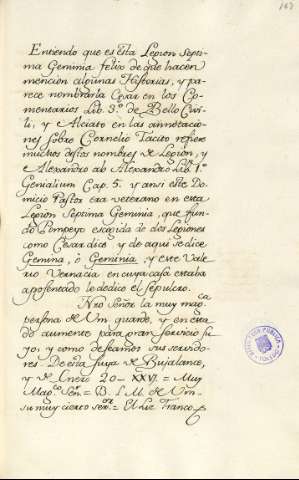 163
Entiendo que es esta Legion Septi-
ma Geminia felix de que hacen
mencion algunas Historias, y pa-
rece nombrarla Cesar en los Co-
mentarios Lib. 3.º de Bello Civi-
li, y Alciato en las annotacio-
nes sobre Cornelio Tacito refiere
muchos destos nombres de Legion, y
Alexandro ab Alexandro Lib. 1.º
Genialium Cap. 5. y ansi este Do-
micio Pastor era veterano en esta
Legion Septima Geminia, que fun-
dó Pompeyo escogida de dos Legiones
como Cesar dice y de aqui se dice
Gemina, ó Geminia, y este Vale-
rio Vernacia en cuya casa estaba
aposentado le dedicó el sepulcro.
Nro Señor la muy mag.ca
persona de Vm guarde, y en esta-
do aumente para gran servicio su-
yo, y como deseamos sus servido-
res. De esta suya de Bujalance,
y de Enero 20 - XXVI. = Muy
Mag.co Señ.r = B. L. M. de Vm-
su muy cierto ser.or = El Liz. Franco